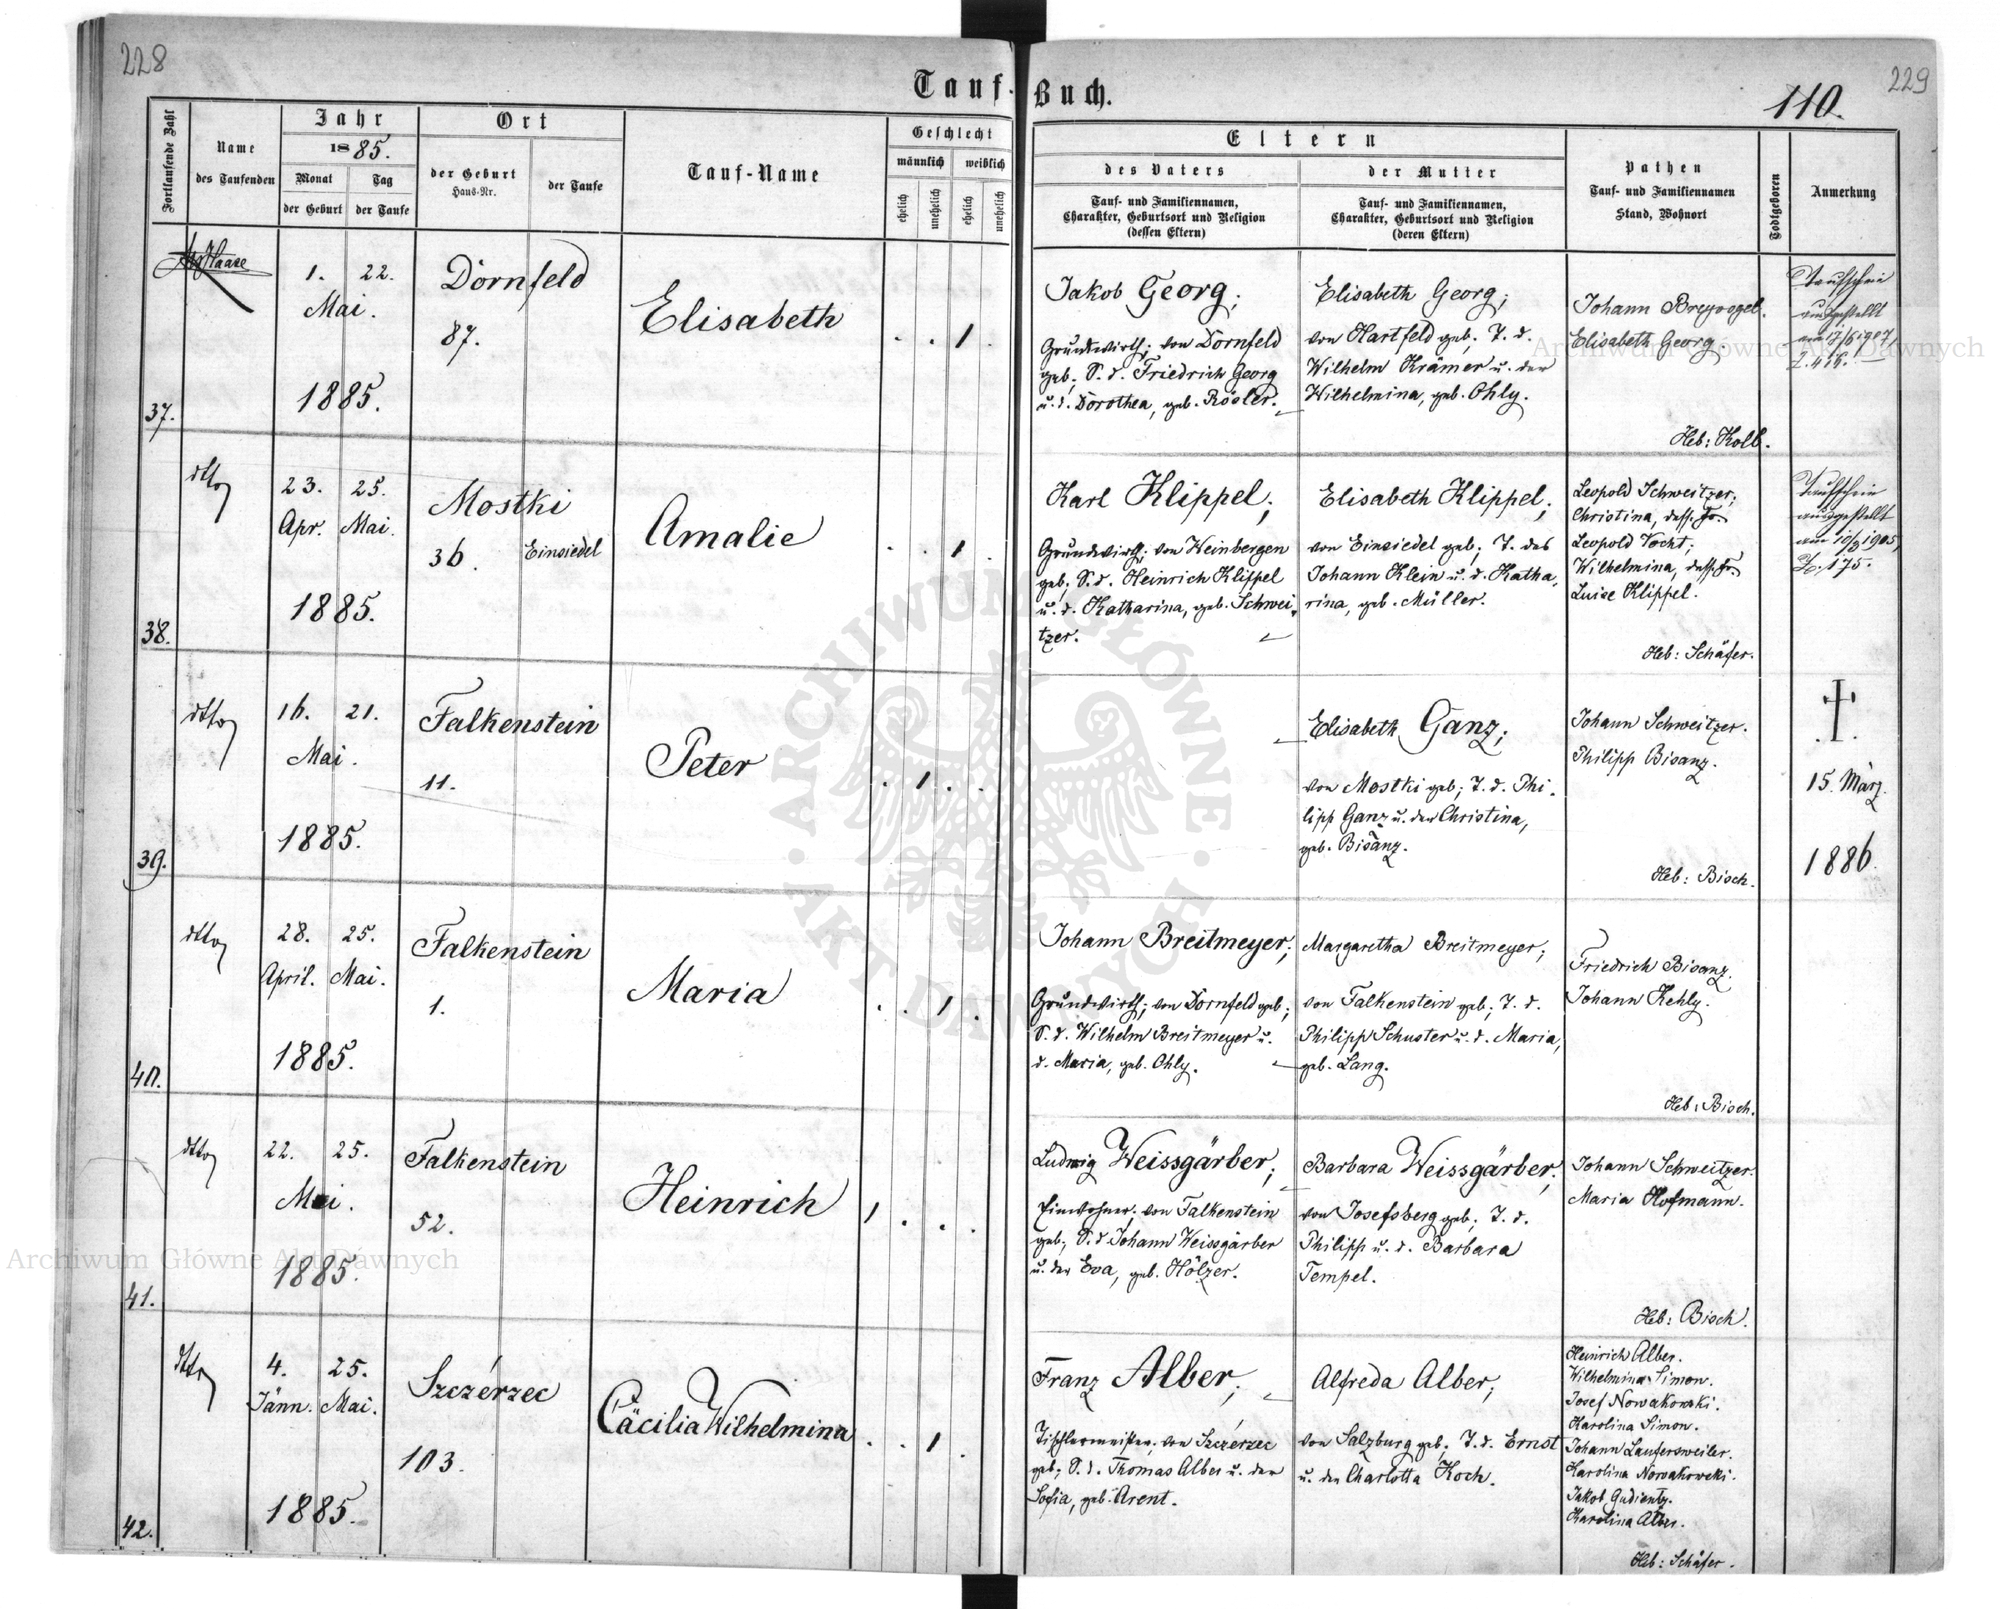 228
229
Tauf-Buch.
110.
Fortlaufende Zahl
Name
des Taufenden
Jahr
1885.
Monat
der Geburt
Tag
der Taufe
Ort
der Geburt
Haus-Nr.
der Taufe
Tauf-Name
Geschlecht
männlich
weiblich
ehelich
unehelich
ehelich
unehelich
Eltern
des Vaters
Tauf- und Familiennamen,
Charakter, Geburtsort und Religion
(dessen Eltern)
der Mutter
Tauf- und Familiennamen,
Charakter, Geburtsort und Religion
(deren Eltern)
Pathen
Tauf- und Familiennamen
Stand, Wohnort
Todtgeboren
Anmerkung
37.
Haase
1. 22.
Mai.
1885.
Dornfeld
87.
Elisabeth
. . 1 .
Jakob Georg;
Grundwirth; von Dornfeld
geb; S. d. Friedrich Georg
u. d. Dorothea, geb. Rösler.
Elisabeth Georg;
von Hartfeld geb; T. d.
Wilhelm Krämer u. der
Wilhelmina, geb. Ohly.
Johann Breyvogel.
Elisabeth Georg.
Heb: Kolb.
Taufschein
ausgestellt
38.
dtto
23. 25.
Apr. Mai.
1885.
Mostki
36. Einsiedel
Amalie
. . 1 .
Karl Klippel;
Grundwirth; von Weinbergen
geb; S. d. Heinrich Klippel
u. d. Katharina, geb. Schwei-
tzer.
Elisabeth Klippel;
von Einsiedel geb; T. des
Johann Klein u. d. Katha-
rina, geb. Müller.
Leopold Schweitzer;
Christina, dess. Fr.
Leopold Vocht;
Wilhelmina, dess. Fr.
Luise Klippel.
Heb: Schäfer.
Taufschein
ausgestellt
am 10/3 1905,
Z. 175.
39.
dtto
16. 21.
Mai.
1885.
Falkenstein
11.
Peter
. 1 . .
Elisabeth Ganz;
von Mostki geb; T. d. Phi-
lipp Ganz u. der Christina,
geb. Bisanz.
Johann Schweitzer.
Philipp Bisanz.
Heb: Bisch.
†
15. März
1886.
40.
dtto
28. 25.
April. Mai.
1885.
Falkenstein
1.
Maria
. . 1 .
Johann Breitmeyer;
Grundwirth; von Dornfeld geb;
S. d. Wilhelm Breitmeyer u.
d. Maria, geb. Ohly.
Margaretha Breitmeyer;
von Falkenstein geb; T. d.
Philipp Schuster u. d. Maria,
geb. Lang.
Friedrich Bisanz.
Johann Kehly.
Heb: Bisch.
41.
dtto
22. 25.
Mai.
1885.
Falkenstein
52.
Heinrich
1 . . .
Ludwig Weissgärber;
Einwohner; von Falkenstein
geb; S. d. Johann Weissgärber
u. der Eva, geb. Hölzer.
Barbara Weissgärber;
von Josefsberg geb; T. d.
Philipp u. d. Barbara
Tempel.
Johann Schweitzer.
Maria Hofmann.
Heb: Bisch.
42.
dtto
4. 25.
Jänn. Mai.
1885.
Szczérzec
103.
Cäcilia Wilhelmina
. . 1 .
Franz Alber;
Tischlermeister; von Szczérzec
geb; S. d. Thomas Alber u. der
Sofia, geb. Arent.
Alfreda Alber;
von Salzburg geb; T. d. Ernst
u. der Charlotta Koch.
Heinrich Alber.
Wilhelmina Simon.
Josef Nowakowski.
Karolina Simon.
Johann Laufersweiler.
Karolina Nowakowski.
Jakob Gudientz.
Karolina Alber.
Heb: Schäfer.
Archiwum Główne Akt Dawnych
Archiwum Główne Akt Dawnych
ARCHIWUM GŁÓWNE
AKT DAWNYCH